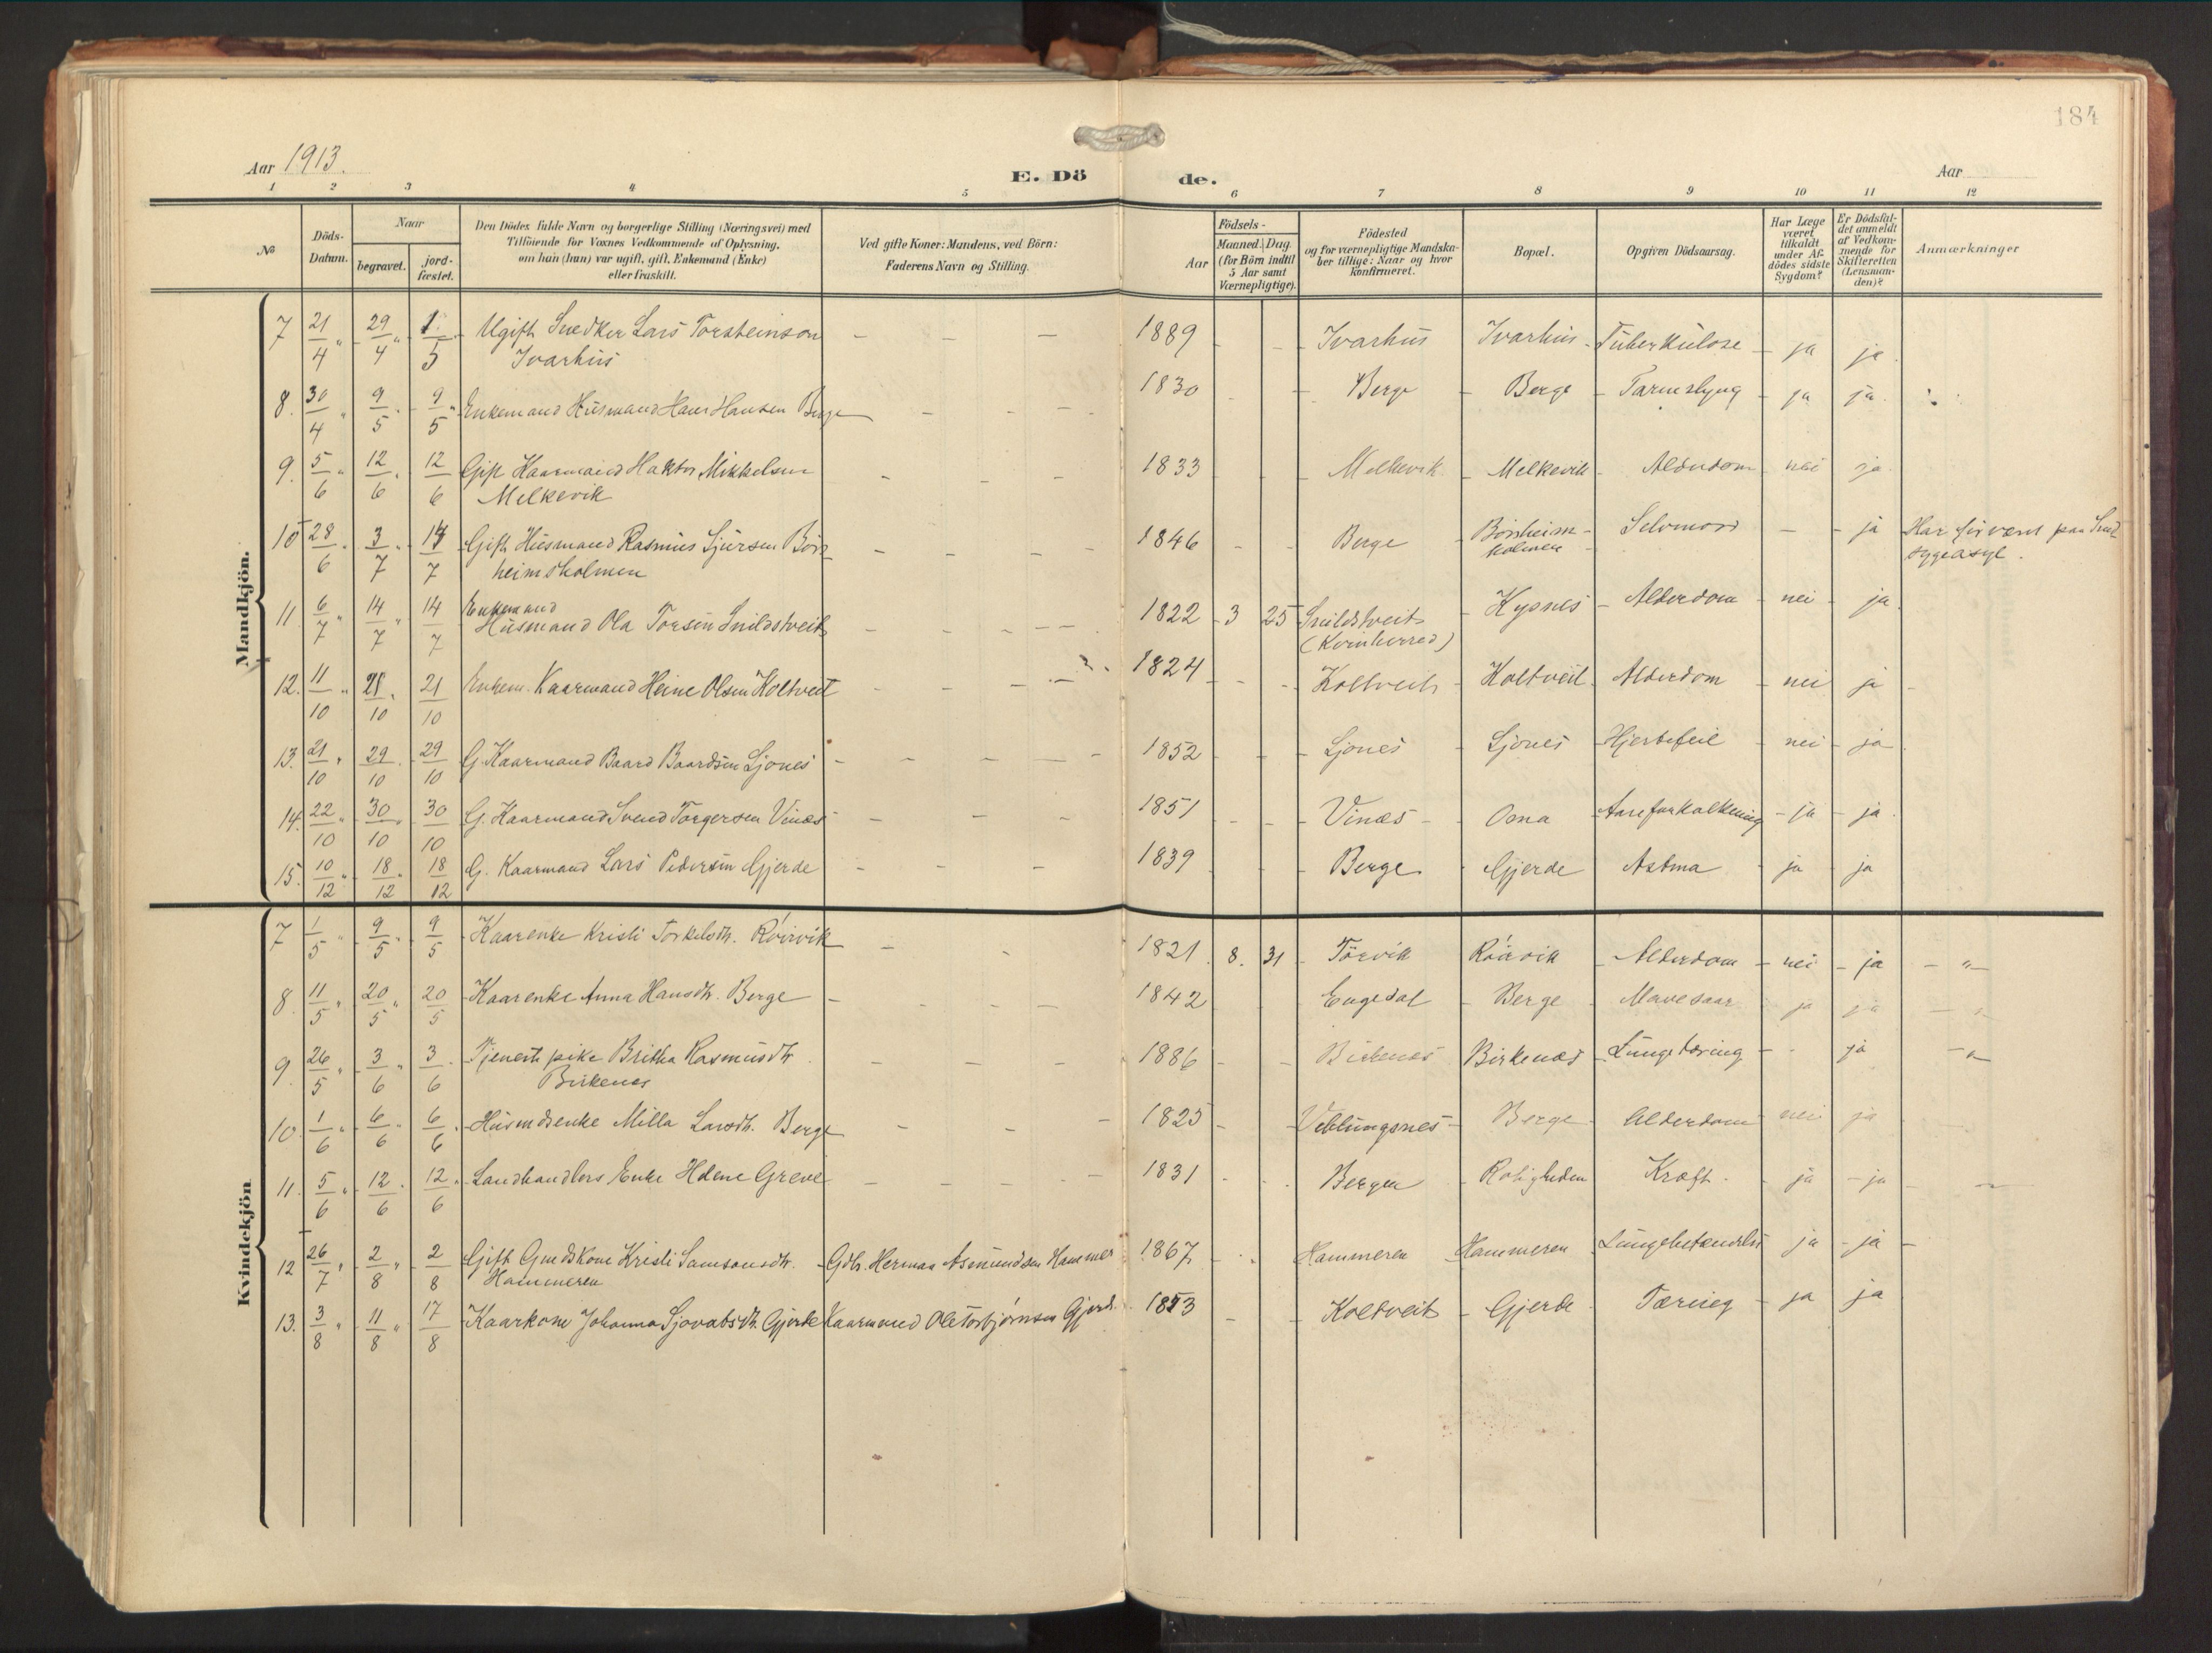 184
Aar 1913.
E. Dö de.
Aar
1 2 3 4 5 6 7 8 9 10 11 12
№
Döds-Datum.
Naar
begravet.
jord-fæstet.
Den Dödes fulde Navn og borgerlige Stilling (Næringsvei) med
Tilföiende for Voxnes Vedkommende af Oplysning,
om han (hun) var ugift, gift, Enkemand (Enke)
eller fraskilt.
Ved gifte Koner: Mandens, ved Börn:
Faderens Navn og Stilling.
Födsels-
Aar
Maaned. Dag.
(for Börn indtil
5 Aar samt
Værnepligtige).
Födested
og for værnepligtige Mandska-
ber tillige: Naar og hvor
Konfirmeret.
Bopæl.
Opgiven Dödsaarsag.
Har Læge
været
tilkaldt
under Af-
dödes sidste
Sygdom?
Er Dödsfal-
det anmeldt
af Vedkom-
mende for
Skifteretten
(Lensman-
den)?
Anmærkninger
Mandkjön.
7 21/4 " 29/4 " 1/5 Ugift Snedker Lars Torsteinson - - - 1889 - - Ivarhus Ivarhus - Tuberkulose - ja ja.
Ivarhus
8. 30/4 " 9/5 " 9/5 " Enkemand Husmand Hans Hansen Berge - - - 1830 - - Berge - Berge - Tarmslyng - ja ja.
9. 5/6 " 12/6 " 12/6 Gift Kaarmand Haktor Mikkelsen - - - 1833 - - Melkevik - Melkevik - Alderdom - nei ja.
Melkevik
10 28/6 " 3/7 " 14/7 Gift Husmand Rasmus Sjursen Börs - - - 1846 - - Berge - Börsheim- Selvmord - - ja Har för været paa Sind
heimsholmen holmen sygeasyl.
11. 6/7 " 14/7 " 14/7 Enkemand
Husmand Ola Torsen Snilstveit - - - 1822 - 3 25 Snilstveit - Kysnes - Alderdom - nei - ja
(Kvinherred)
12. 11/10 " 21/10 " 21/10 Enkem. Kaarmand Heine Olsen Koltveit - - - 1824 - - Koltveit - Koltveit - Alderdom - nei ja -
13. 21/10 " 29/10 29/10 G. Kaarmand Baard Baardsen Ljones - - - 1852 - - Ljones - Ljones - Hjertefeil - nei - ja
14. 22/10 " 30/10 " 30/10 G. Kaarmand Svend Torgersen Vinæs - - - 1851 - - Vinæs - Oma - Aareforkalkning - ja - ja
15. 10/12 " 18/12 " 18/12 G. Kaarmand Lars Pedersen Gjerde - - - 1839 - - Berge - Gjerde - Astma - ja - ja
Kvindekjön
7 1/5 " 9/5 " 9/5 Kaarenke Kristi Torkelsdtr. Röirvik - - 1821 8. 31 - Törvik Röirvik - Alderdom - nei - ja - " -
8. 11/5 " 20/5 " 20/5 Kaarenke Anna Hansdtr. Berge - - - 1842 - Engedal - Berge - Mavesaar ja ja - "
9. 26/5 " 3/6 " 3/6 Tjenestpike Britha Rasmusdtr. - - - 1886 - - Birkenæs Birkenæs - Lungetæring - - ja - "
Birkenæs
10. 1/6 " 6/6 " 6/6 " Husmdsenke Milla Larsdtr. Berge - - - 1825 - Veblungsnes - Berge - Alderdom nei ja
11. 5/6 " 12/6 " 12/6 " Landhandlers Enke Helene Greve - - - 1831 - - Bergen - Roligheden Kræft - ja - ja -
12 26/7 " 2/8 " 2/8 Gift Gmdskone Kristi Samsonsdtr. - Gdb. Herman Asmundsen Hammer 1867 - - Hammeren Hammeren Lungebetændelse ja - ja -
Hammeren
13. 3/8 " 11/8 " 17/8 Kaarkone Johanna Sjovatsdtr. Gjerde Kaarmand Ole Torbjörnsen Gjerd. 1853 - - Koltveit - Gjerde - Tæring - ja ja